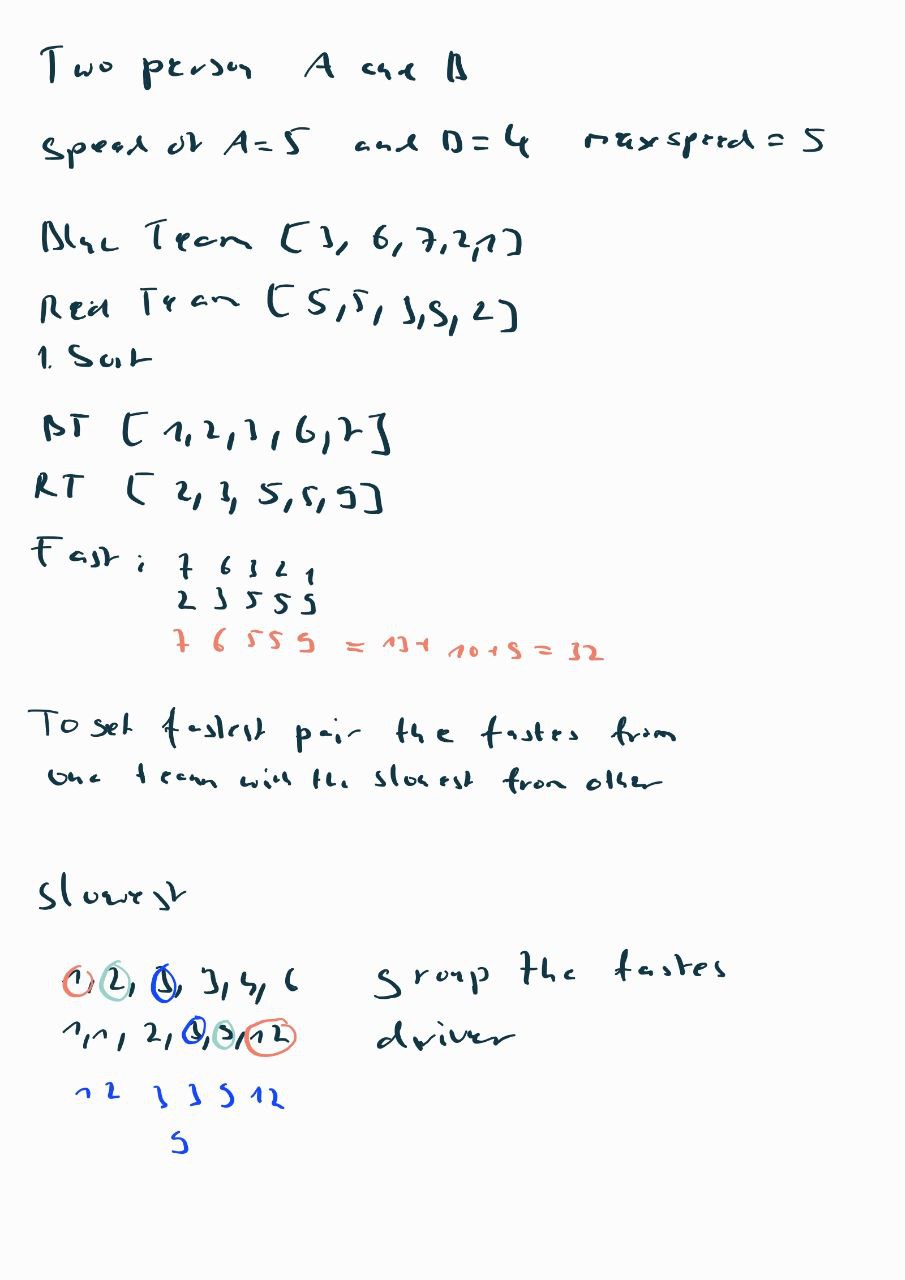 Two person A and B
speed of A=5 and B=4 maxspeed = 5
Blue Team [3, 6, 7, 2, 1]
Red Team [5, 5, 3, 9, 2]
1. Sort
BT [1, 2, 3, 6, 7]
RT [2, 3, 5, 5, 9]
Fast: 7 6 3 2 1
2 3 5 5 9
7 6 5 5 9 = 13+ 10+9 = 32
To get fastest pair the fastes from
one team with the slowest from other
slowest
1, 2, 3, 3, 4, 6 group the fastes
1, 1, 2, 3, 9, 12 driver
1 2 3 3 9 12
9